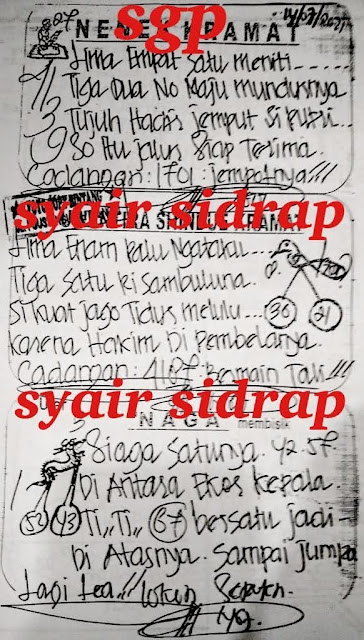 sgp
NENEK KERAMAT
Lima Empat Satu meniti
Tiga Dua No Maju mundurnya
Tujuh Habis jemput si putri
So Itu jalus Siap Terima.
Cadangan: 1701: jemputnya!!!
syair sidrap
Lima Enam Kalu Ngataku
Tiga Satu ki sambuluna.
Si kuat jago Tidur melulu
Karena Hakim Di Pembelanya.
30 21
Cadangan: 4187: Bermain Tali!!!
syair sidrap
NAGA membisik
Siaga Satunya. 42.57.
Di Antara Ekor Kepala.
52 43
Ti,, Ti,, 67 bersatu jadi
Di Atasnya. Sampai Jumpa
Lagi